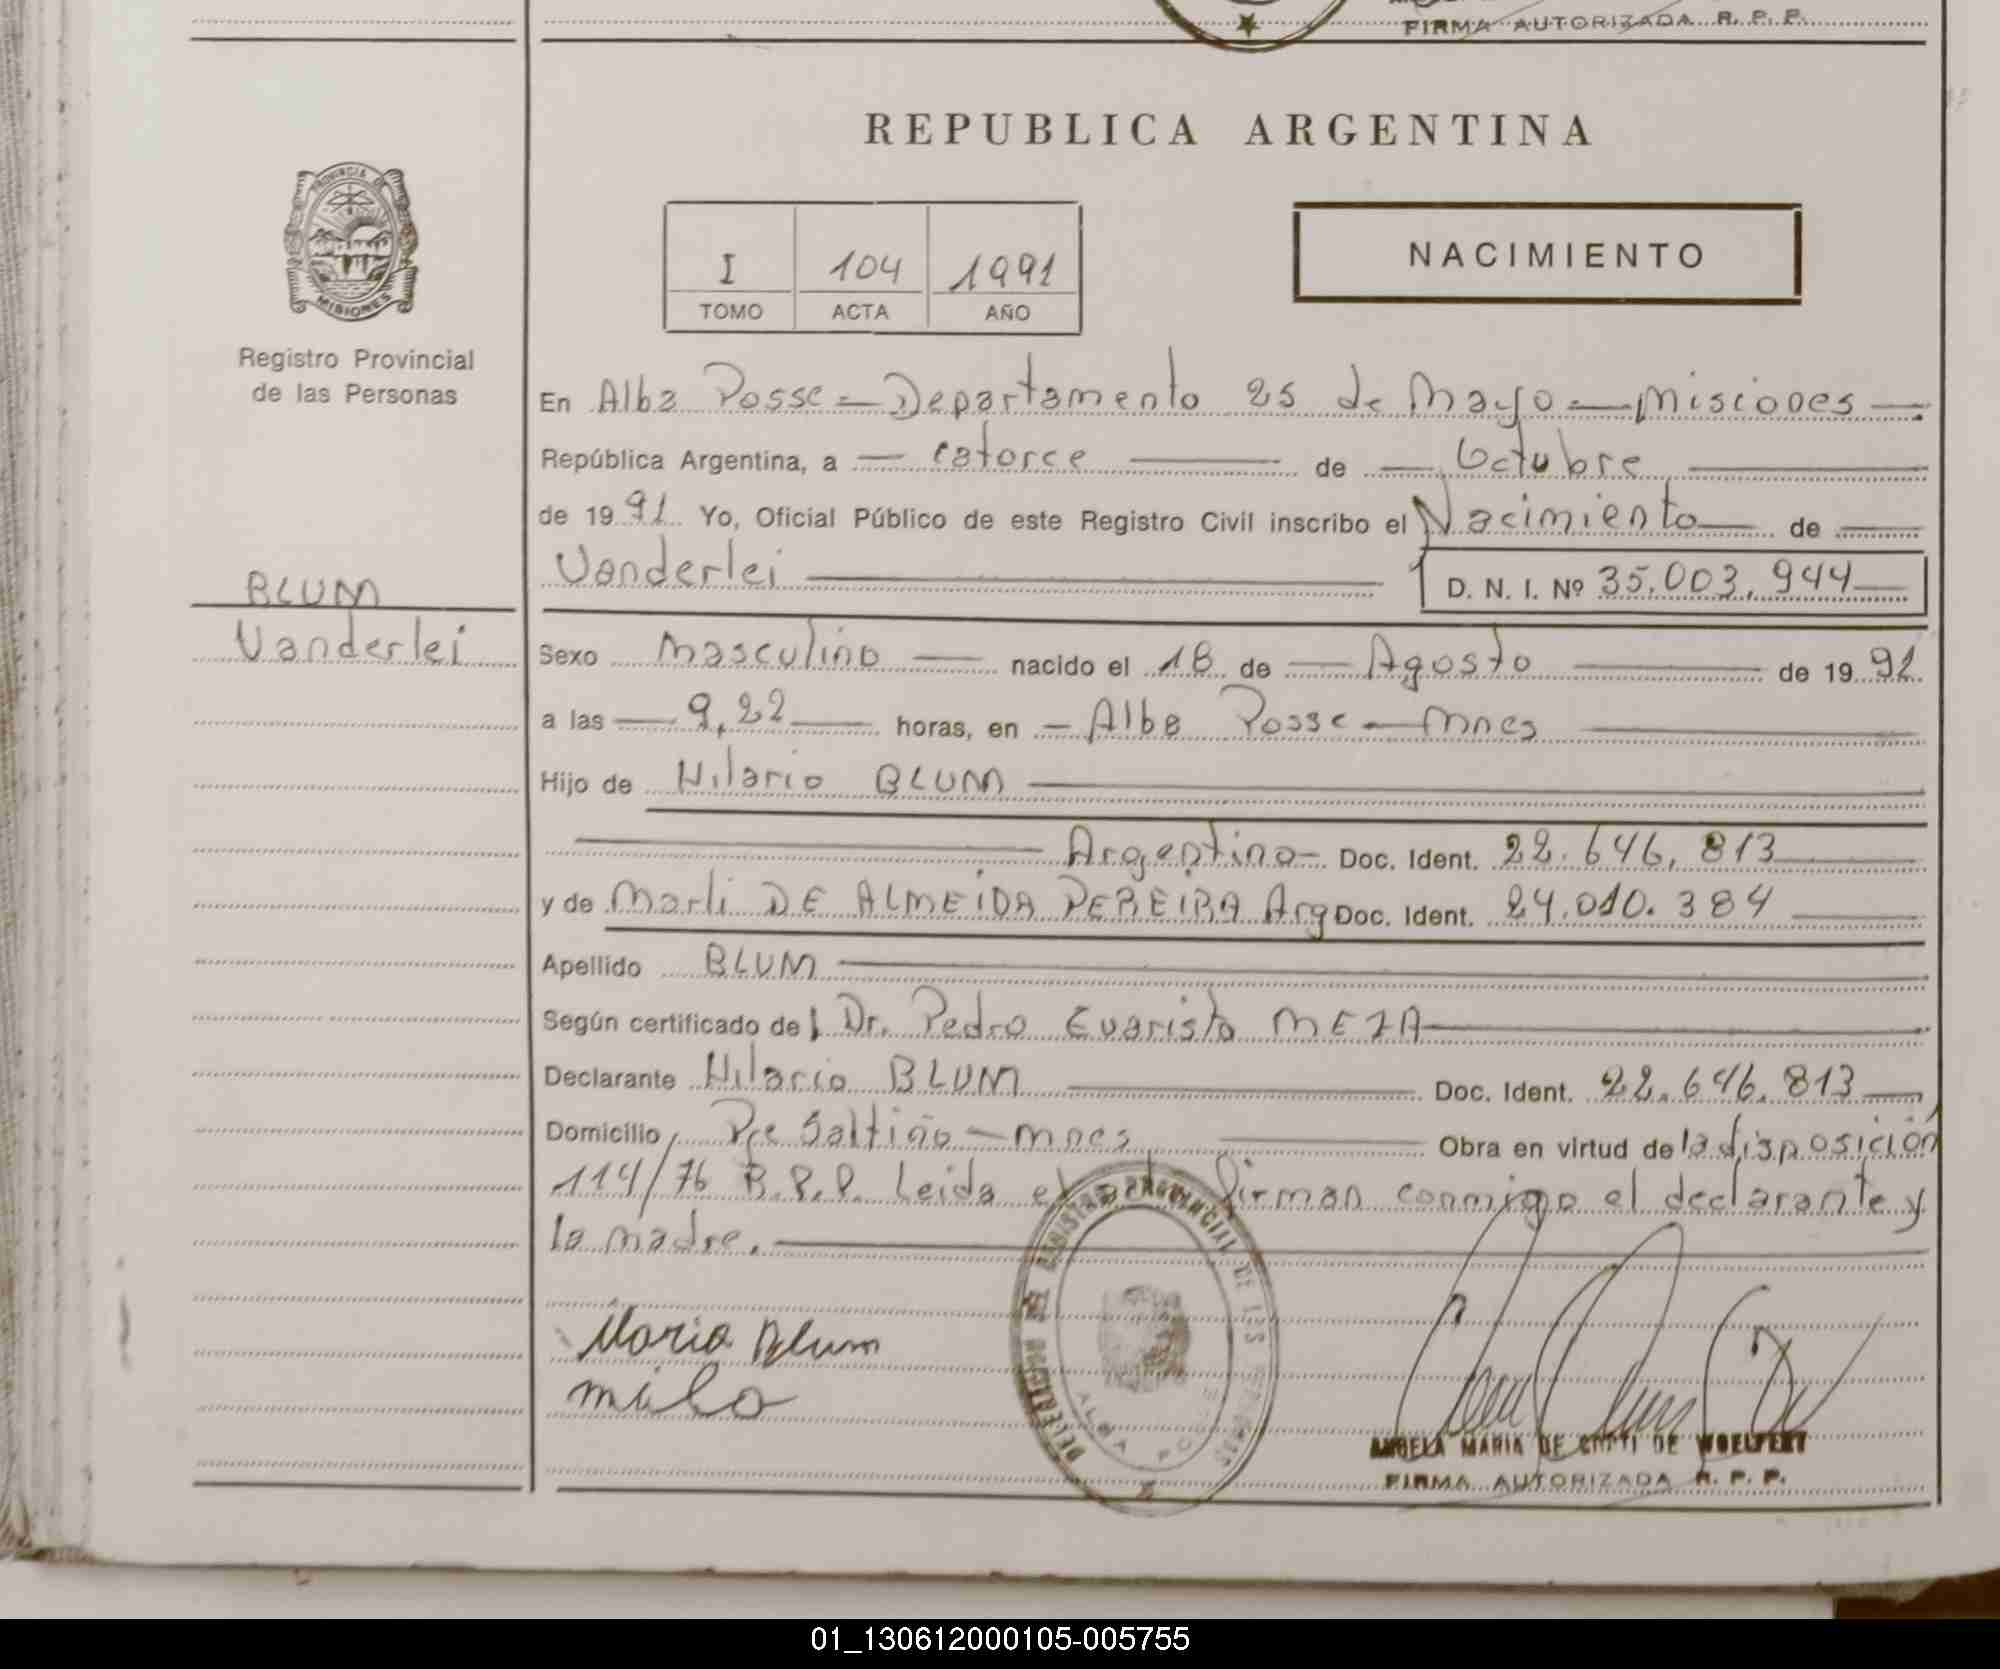 FIRMA AUTORIZADA R. P. P.
REPUBLICA ARGENTINA
PROVINCIA DE MISIONES
Registro Provincial
de las Personas
I 104 1991
TOMO ACTA AÑO
NACIMIENTO
En Alba Posse - Departamento 25 de Mayo - Misiones -
República Argentina, a - catorce - de - Octubre
de 1991 Yo, Oficial Público de este Registro Civil inscribo el Nacimiento - de
Vanderlei D. N. I. Nº 35.003.944
BLUM
Vanderlei
Sexo masculino - nacido el 18 de - Agosto - de 1991
a las - 9,22 - horas, en - Alba Posse - Mnes
Hijo de Hilario BLUM
Argentino - Doc. Ident. 22.646.813
y de Marli DE ALMEIDA PEREIRA Arg Doc. Ident. 24.010.384
Apellido BLUM
Según certificado del Dr. Pedro Evaristo MEZA
Declarante Hilario BLUM Doc. Ident. 22.646.813
Domicilio Pje Saltiño - Mnes Obra en virtud de la disposición
114/76 R.P.P. Leida el firman conmigo el declarante y
la madre.
Maria Blum
DELEGACION DEL REGISTRO PROVINCIAL DE LAS PERSONAS
ALBA POSSE
ANGELA MARIA DE DE WOELFERT
FIRMA AUTORIZADA R. P. P.
01_130612000105-005755